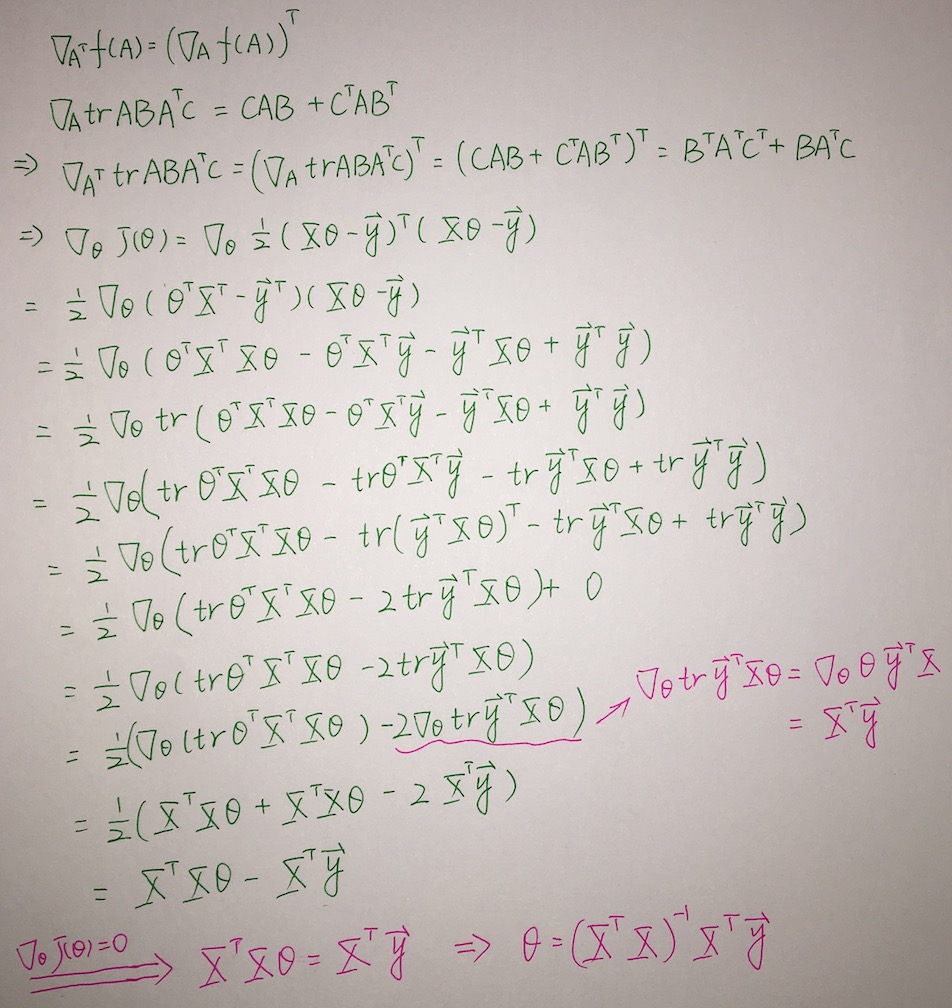 ∇_{A^T} f(A) = (∇_A f(A))^T
∇_A tr ABA^TC = CAB + C^TAB^T
⇒ ∇_{A^T} tr ABA^TC = (∇_A tr ABA^TC)^T = (CAB + C^TAB^T)^T = B^TA^TC^T + BA^TC
⇒ ∇_θ J(θ) = ∇_θ ½ (Xθ - y⃗)^T (Xθ - y⃗)
= ½ ∇_θ (θ^TX^T - y⃗^T)(Xθ - y⃗)
= ½ ∇_θ (θ^TX^TXθ - θ^TX^Ty⃗ - y⃗^TXθ + y⃗^Ty⃗)
= ½ ∇_θ tr (θ^TX^TXθ - θ^TX^Ty⃗ - y⃗^TXθ + y⃗^Ty⃗)
= ½ ∇_θ (tr θ^TX^TXθ - tr θ^TX^Ty⃗ - tr y⃗^TXθ + tr y⃗^Ty⃗)
= ½ ∇_θ (tr θ^TX^TXθ - tr(y⃗^TXθ)^T - tr y⃗^TXθ + tr y⃗^Ty⃗)
= ½ ∇_θ (tr θ^TX^TXθ - 2 tr y⃗^TXθ) + 0
= ½ ∇_θ (tr θ^TX^TXθ - 2 tr y⃗^TXθ)
= ½ (∇_θ (tr θ^TX^TXθ) - 2∇_θ tr y⃗^TXθ)
∇_θ tr y⃗^TXθ = ∇_θ θ y⃗^TX
= X^Ty⃗
= ½ (X^TXθ + X^TXθ - 2 X^Ty⃗)
= X^TXθ - X^Ty⃗
∇_θ J(θ) = 0 ⟹ X^TXθ = X^Ty⃗ ⇒ θ = (X^TX)^{-1} X^Ty⃗